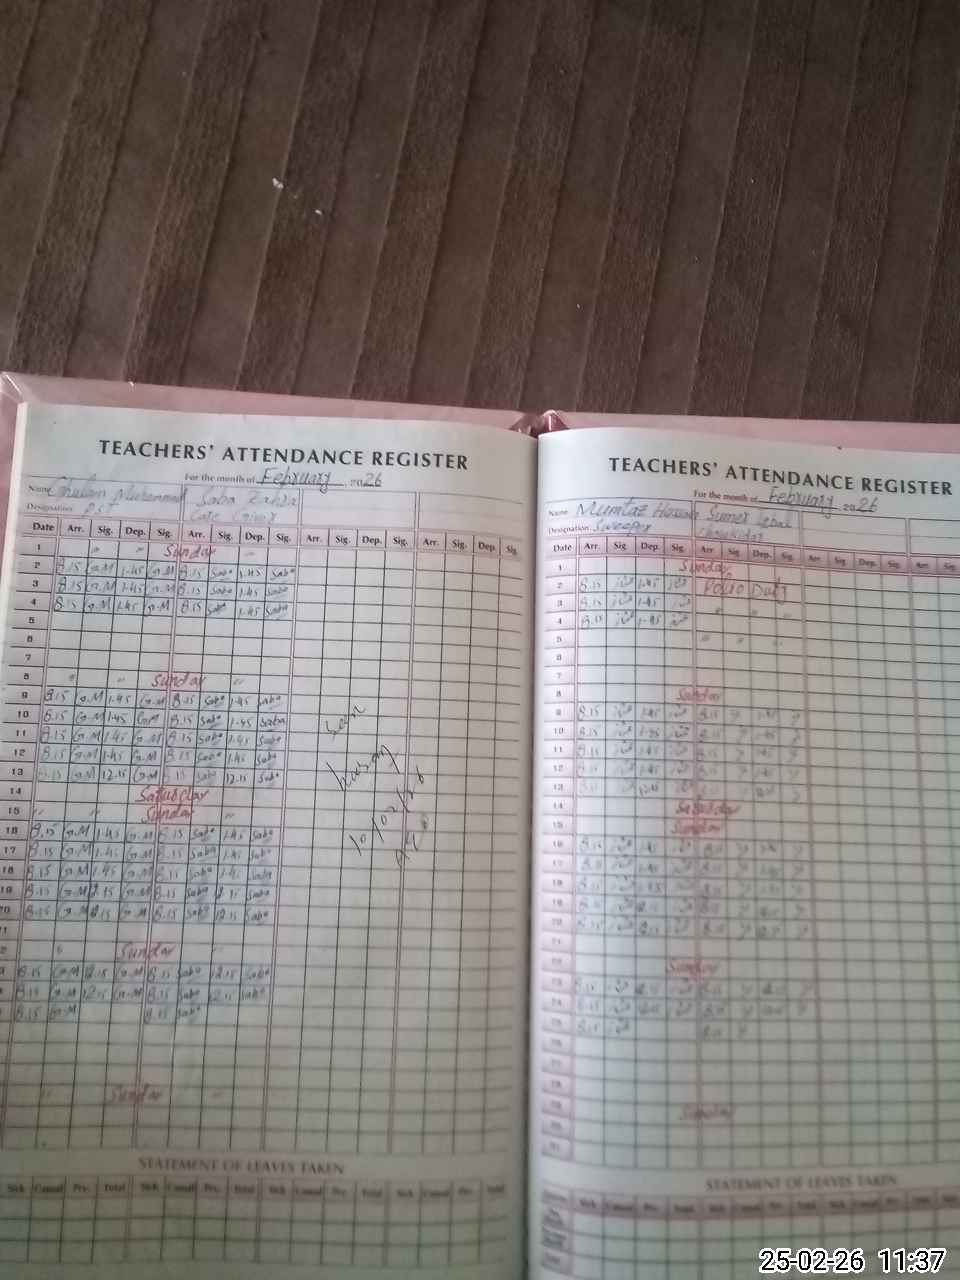 TEACHERS' ATTENDANCE REGISTER
For the month of February 2026
Name Ghulam Muhammad Saba Zahra
Designation PST Care Giver
Date Arr. Sig. Dep. Sig. Arr. Sig. Dep. Sig. Arr. Sig. Dep. Sig. Arr. Sig. Dep. Sig.
1 " " Sunday "
2 8.15 G.M 1.45 G.M 8.15 Saba 1.45 Saba
3 8.15 G.M 1.45 G.M 8.15 Saba 1.45 Saba
4 8.15 G.M 1.45 G.M 8.15 Saba 1.45 Saba
5
6
7
8 " " Sunday "
9 8.15 G.M 1.45 G.M 8.15 Saba 1.45 Saba
10 8.15 G.M 1.45 G.M 8.15 Saba 1.45 Saba
11 8.15 G.M 1.45 G.M 8.15 Saba 1.45 Saba
12 8.15 G.M 1.45 G.M 8.15 Saba 1.45 Saba
13 8.15 G.M 12.15 G.M 8.15 Saba 12.15 Saba
14 Saturday
15 " " Sunday "
16 8.15 G.M 1.45 G.M 8.15 Saba 1.45 Saba
17 8.15 G.M 1.45 G.M 8.15 Saba 1.45 Saba
18 8.15 G.M 1.45 G.M 8.15 Saba 1.45 Saba
19 8.15 G.M 12.15 G.M 8.15 Saba 12.15 Saba
20 8.15 G.M 12.15 G.M 8.15 Saba 12.15 Saba
Sunday "
8.15 G.M 12.15 G.M 8.15 Saba 12.15 Saba
8.15 G.M 12.15 G.M 8.15 Saba 12.15 Saba
8.15 G.M 8.15 Saba
" Sunday "
Seen
STATEMENT OF LEAVES TAKEN
Sick Casual Prv. Total Sick Casual Prv. Total Sick Casual Prv. Total Sick Casual Prv. Total
TEACHERS' ATTENDANCE REGISTER
For the month of February 2026
Name Mumtaz Hussain Sumer Iqbal
Designation Sweeper Chowkidar
Date Arr. Sig. Dep. Sig. Arr Sig. Dep. Sig. Arr Sig. Dep. Sig. Arr. Sig.
1 Sunday
2 8.15 1.45 Polio Duty
3 8.15 1.45
4 8.15 1.45
5
6
7
8 Sunday
9 8.15 1.45 8.15 1.45
10 8.15 1.45 8.15 1.45
11 8.15 1.45 8.15 1.45
12 8.15 1.45 8.15 1.45
13 8.15 12.15 8.15
14 Saturday
15 Sunday
16 8.15 1.45 8.15
17 8.15 1.45 8.15
18 8.15 8.15
19 8.15 12.15 8.15
20 8.15 12.15 8.15
21
22 Sunday
23 8.15 12.15 8.15
24 8.15 12.15 8.15
25 8.15 8.15
Sunday
STATEMENT OF LEAVES TAKEN
25-02-26 11:37